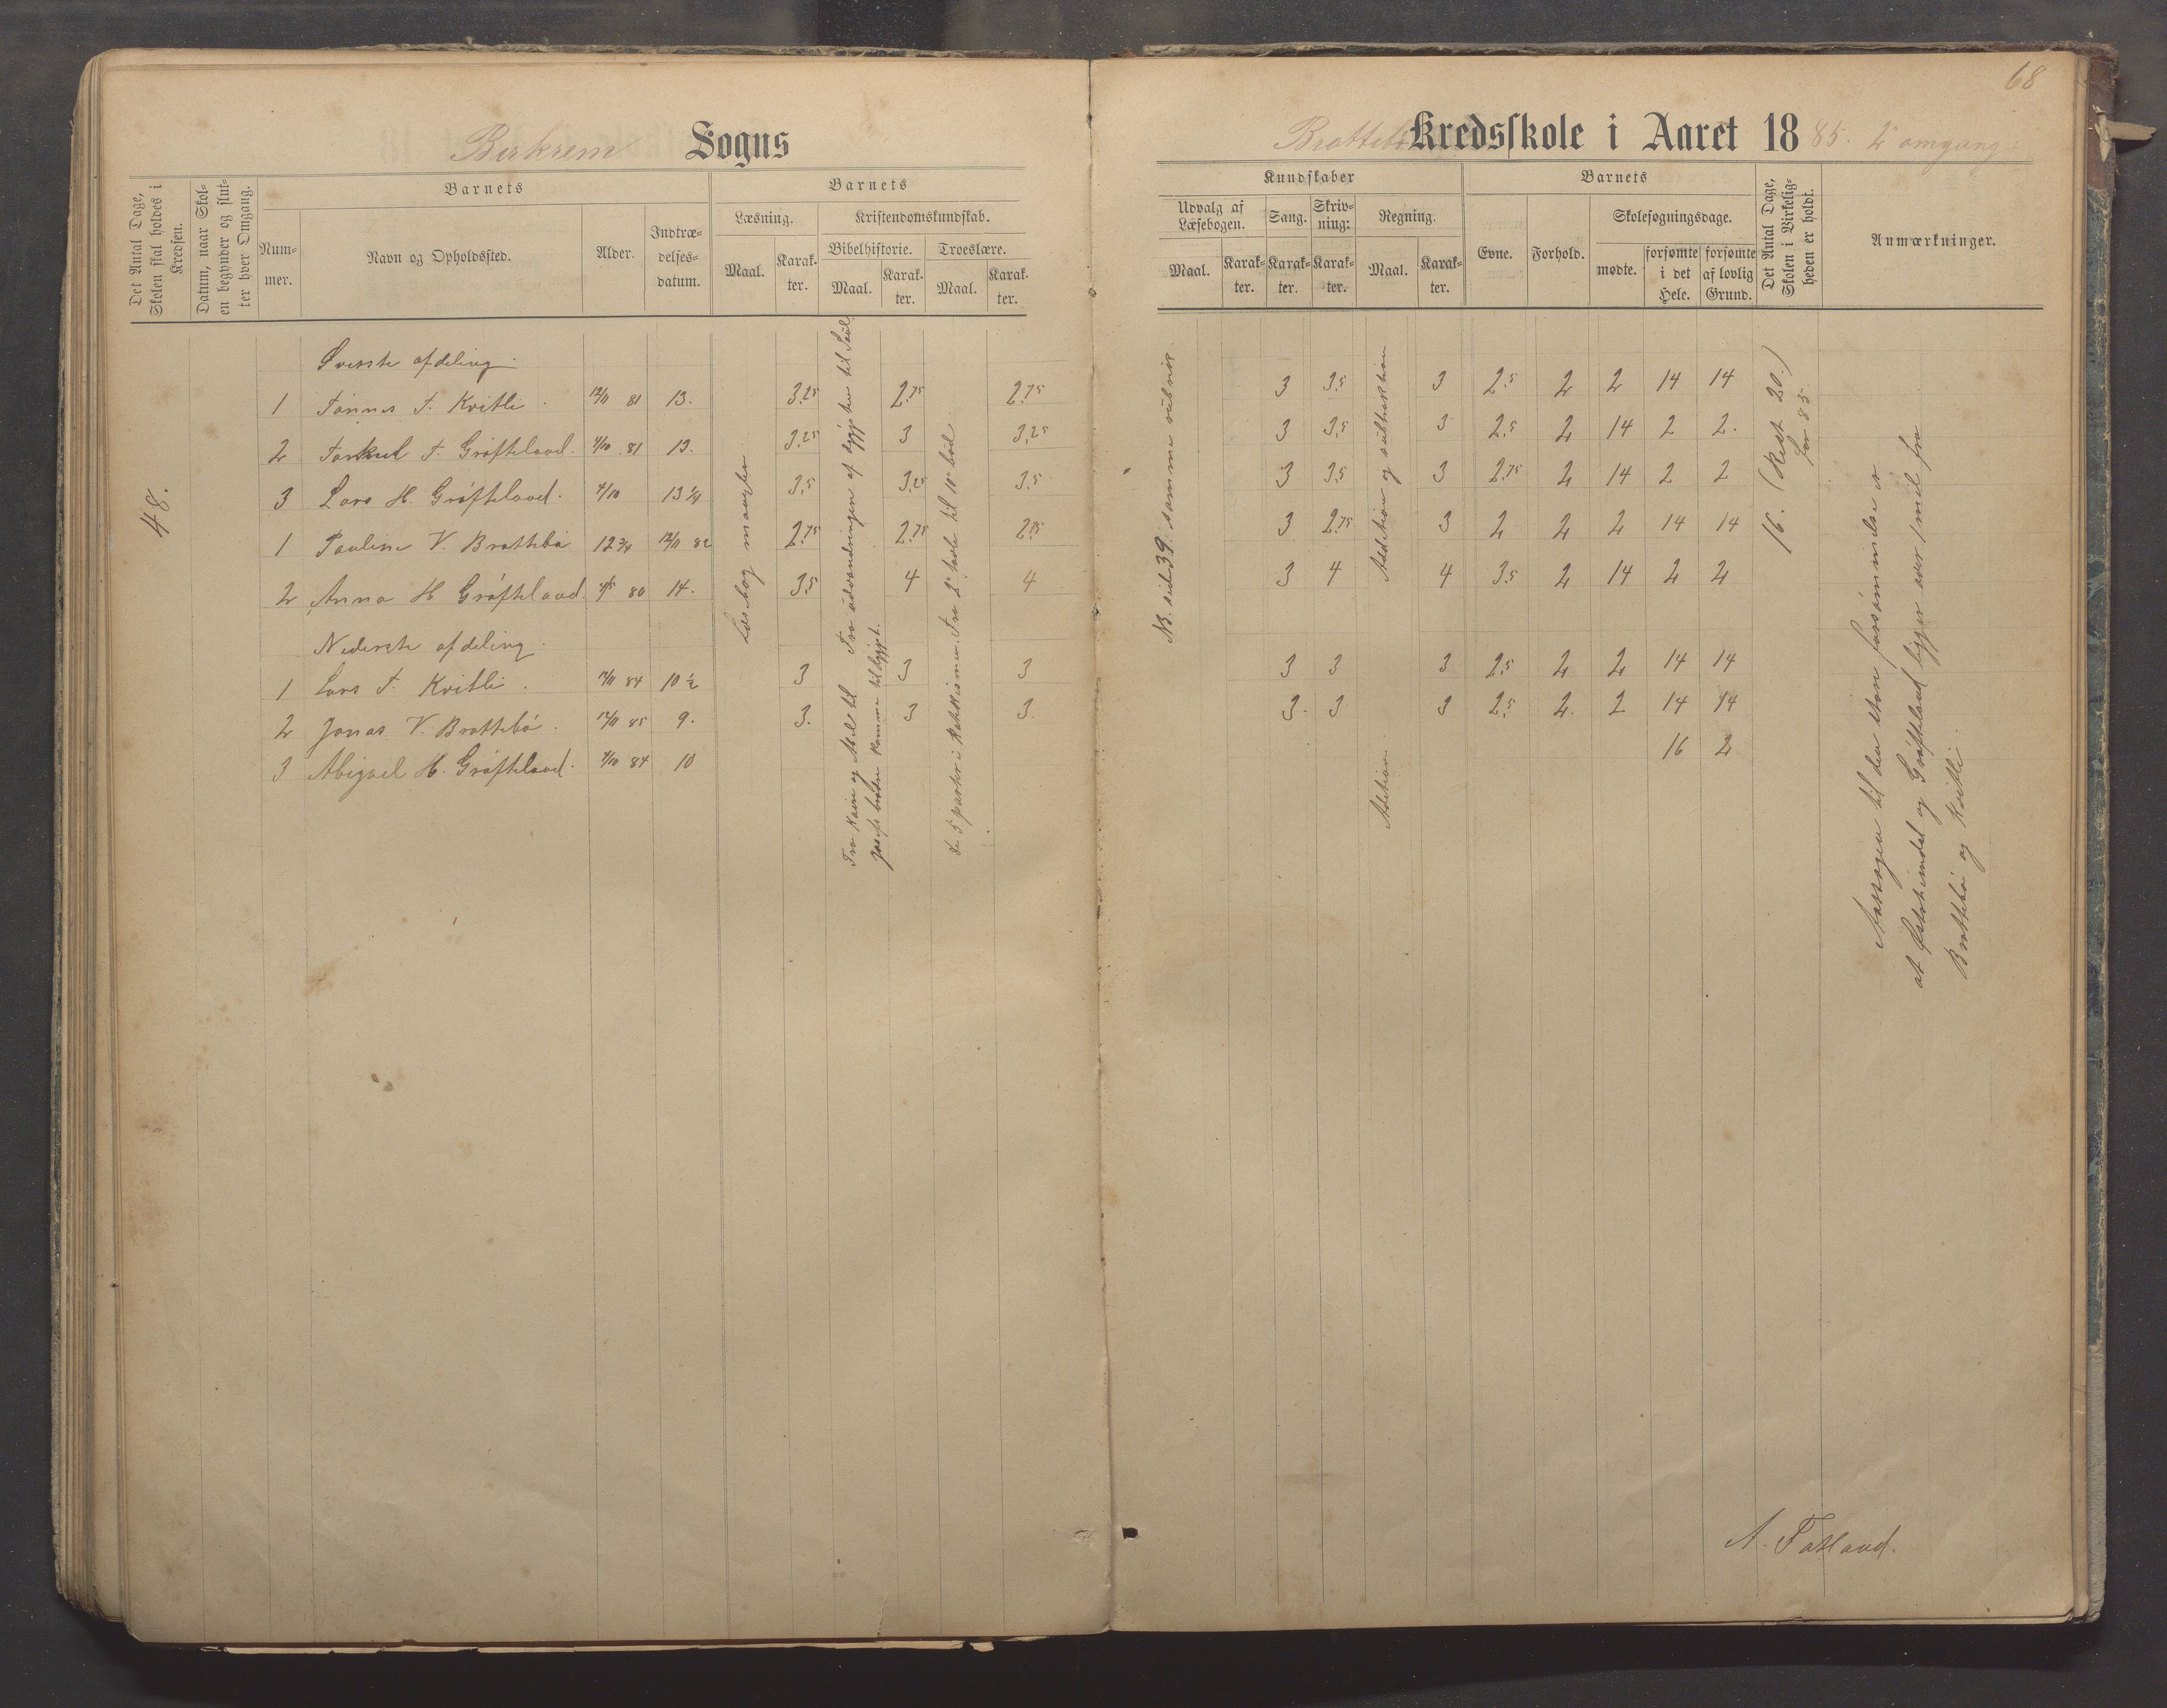 68
Birkrem Sogns
Brattebø Kredsskole i Aaret 1885. 2' omgang
Det Antal Dage, Skolen skal holdes i Kredsen.
Datum, naar Skolen begynder og slutter hver Omgang.
Barnets
Nummer.
Navn og Opholdssted.
Alder.
Indtrædelsesdatum.
Barnets
Læsning.
Maal.
Karakter.
Kristendomskundskab.
Bibelhistorie.
Maal.
Karakter.
Troeslære.
Maal.
Karakter.
Kundskaber
Udvalg af Læsebogen.
Maal.
Karakter.
Sang.
Karakter.
Skrivning:
Karakter.
Regning.
Maal.
Karakter.
Barnets
Evne.
Forhold.
Skolesøgningsdage.
mødte.
forsømte i det Hele.
forsømte af lovlig Grund.
Det Antal Dage, Skolen i Virkeligheden er holdt.
Anmærkninger.
48.
Øverste afdeling.
1 Tønnes T. Kvitli. 12/11 81 13. 3.25 2.75 2.75 3 3.5 3 2.5 2 2 14 14
2 Torkel T. Grøfteland. 4/10 81 13. 3.25 3 3.25 3 3.5 3 2.5 2 14 2 2.
3 Lars H. Grøfteland. 4/10 13 1/4 3.5 3.25 3.5 3 3.5 3 2.75 2 14 2 2
1 Pauline V. Brattebø 12 3/4 12/11 82 2.75 2.75 2.75 3 2.75 3 2 2 2 14 14
2 Anna H Grøfteland. 80 14. 3.5 4 4 3 4 4 3.5 2 14 2 2
Nederste afdeling.
1 Lars T. Kvitli. 12/11 84 10 1/2 3 3 3 3 3 3 2.5 2 2 14 14
2 Jonas V. Brattebø. 12/11 85 9. 3. 3 3. 3. 3 3 2.5 2. 2 14 14
3 Abigael H. Grøfteland. 4/10 84 10 16 2
Fra udvandringen af ægypten til Saul.
Fra Kain og Abel til
Josefs brødre komme til Ægypt.
Fra 2' bols til 10' bud
de 5 parter i Katekismen.
NB. sid 39. samme rubrik.
Addition og subtraktion
Adition.
16. (Rest 20.)
for 85.
Aarsagen til den store forsømmelse er
at og Grøfteland ligger over 1 mil fra
Brattebø og Kvitli.
A. Fatland.